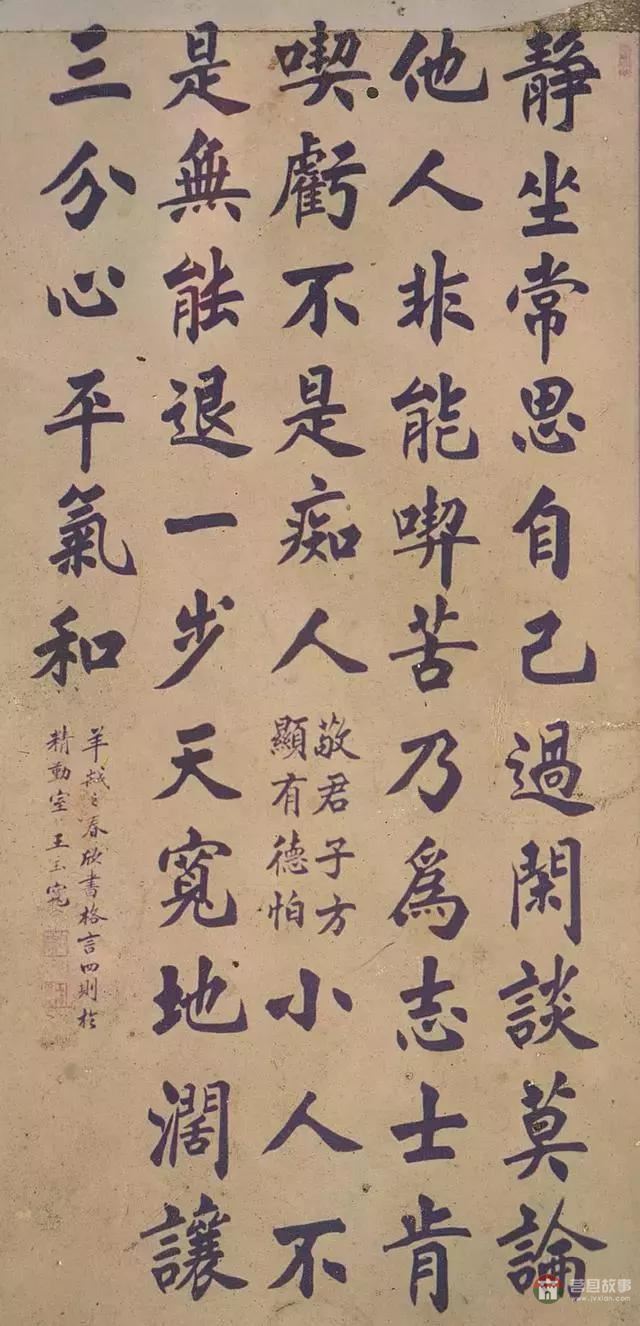 静坐常思自己過閑談莫論
他人非能喫苦乃爲志士肯
喫虧不是痴人
敬君子方
顯有德怕
小人不
是無能退一步天寬地濶讓
三分心平氣和
春欣書格言四則於
精勤室王
莒县故事
www.jvxian.com